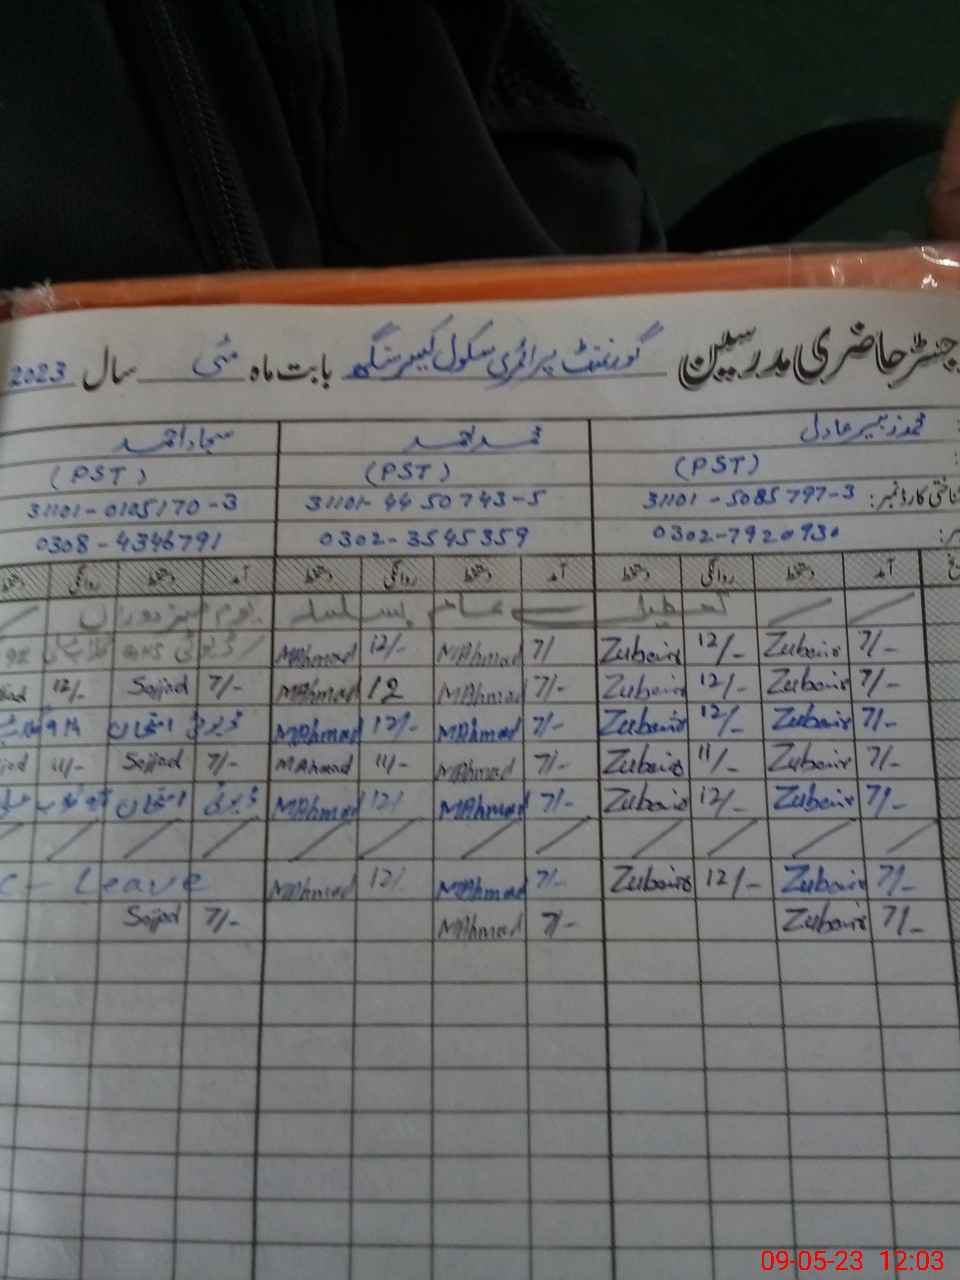 رجسٹر حاضری مدرسین گورنمنٹ پرائمری سکول کیسر سنگھ بابت ماہ مئی سال 2023
محمد زبیر عادل محمد احمد سجاد احمد
(PST) (PST) (PST)
شناختی کارڈ نمبر: 31101-5085797-3 31101-4450743-5 31101-0105170-3
0302-7920930 0302-3545359 0308-4346791
آمد دستخط روانگی دستخط آمد دستخط روانگی دستخط آمد دستخط روانگی
تعطیل عام بسلسلہ یوم مزدوراں
7/- Zubair 12/- Zubair 7/ MAhmad 12/- MAhmad ڈیوٹی
7/- Zubair 12/- Zubair 7/- MAhmad 12 MAhmad 7/- Sajjad 12/-
7/- Zubair 12/- Zubair 7/- MAhmad 12/- MAhmad ڈیوٹی امتحان
7/- Zubair 11/- Zubair 7/- MAhmad 11/- MAhmad 7/- Sajjad 11/-
7/- Zubair 12/- Zubair 7/- MAhmad 12/ MAhmad ڈیوٹی امتحان
7/- Zubair 12/- Zubair 7/- MAhmad 12/ MAhmad C-Leave
7/- Zubair 7/- MAhmad 7/- Sajjad
09-05-23 12:03